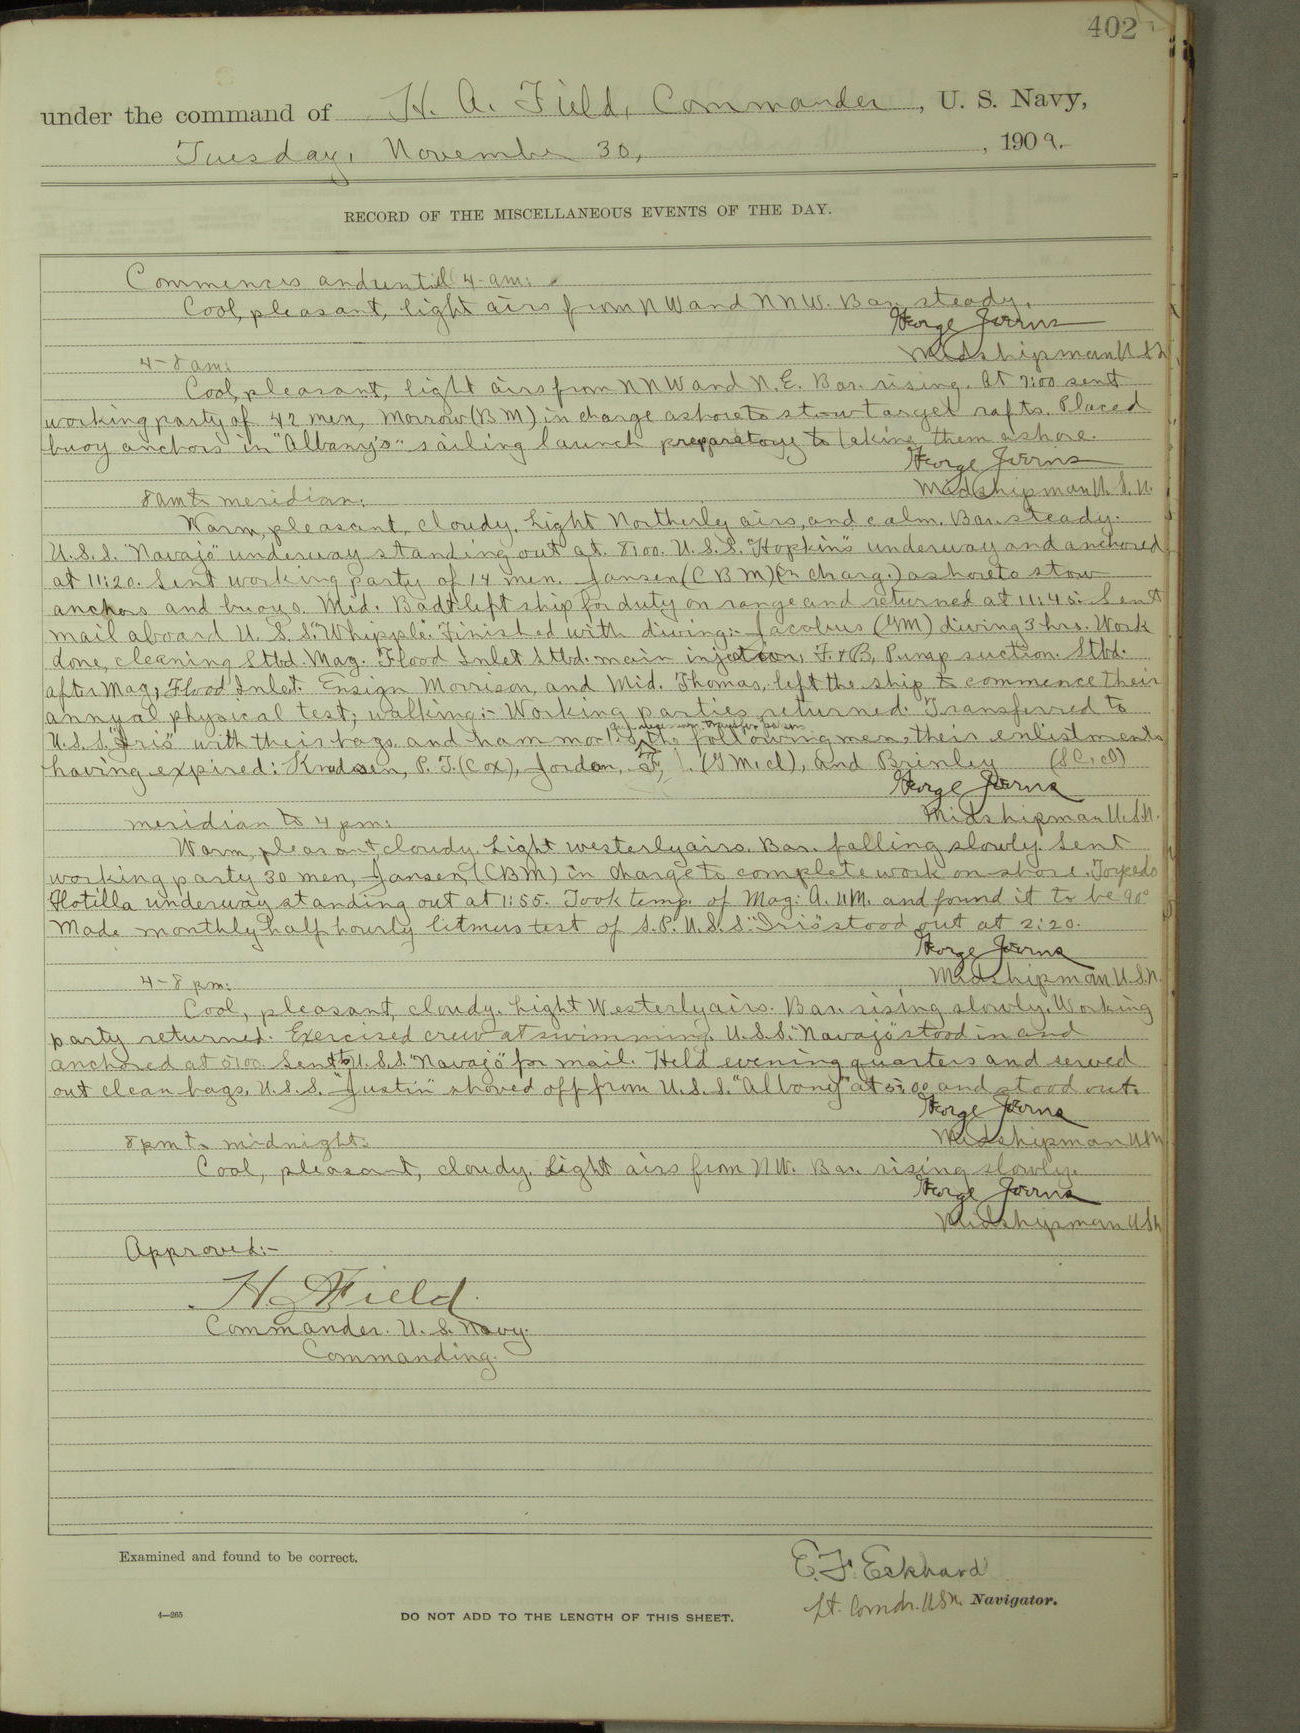 402
under the command of H. A. Field, Commander, U. S. Navy,
Tuesday, November 30, , 1909.
RECORD OF THE MISCELLANEOUS EVENTS OF THE DAY.
Commences and until 4 am:
Cool, pleasant, light airs from NW and NNW. Bar. steady.
George Joerns
Midshipman U.S.N.
4-8 am:
Cool, pleasant, light airs from NNW and N.E. Bar. rising. At 7:00 sent
working party of 42 men, Morrow (BM) in charge ashore to stow target rafts. Placed
buoy anchors in "Albany's" sailing launch preparatory to taking them ashore.
George Joerns
Midshipman U.S.N.
8 am to meridian:
Warm, pleasant, cloudy. Light Northerly airs, and calm. Bar. steady.
U.S.S. "Navajo" underway standing out at 8:00. U.S.S. "Hopkins" underway and anchored
at 11:20. Sent working party of 14 men. Jansen (CBM) (in charg.) ashore to stow
anchors and buoys. Mid. Badt left ship for duty on range and returned at 11:45. Sent
mail aboard U.S.S. "Whipple". Finished with diving:- Jacobus (GM) diving 3 hrs. Work
done, cleaning Stbd. Mag. Flood Inlet Stbd. main injection, F.&B. Pump suction. Stbd.
after Mag, Flood Inlet. Ensign Morrison, and Mid. Thomas, left the ship to commence their
annual physical test, walking:- Working parties returned. Transferred to
U.S.S. "Iris" with their bags and hammocks the following men, their enlistments
having expired: Knudsen, P.T. (Cox), Jordon, F, (GM1cl), and Brinley (SC1cl)
George Joerns
Midshipman U.S.N.
meridian to 4 pm:
Warm, pleasant, cloudy. Light westerly airs. Bar. falling slowly. Sent
working party 30 men, Jansen, (CBM) in charge to complete work on shore. Torpedo
Flotilla underway standing out at 1:55. Took temp. of Mag: A. 11M. and found it to be 90°
Made monthly half hourly litmus test of S.P. U.S.S. "Iris" stood out at 2:20.
George Joerns
Midshipman U.S.N.
4-8 pm:
Cool, pleasant, cloudy. Light Westerly airs. Bar. rising slowly. Working
party returned. Exercised crew at swimming. U.S.S. "Navajo" stood in and
anchored at 5:00. Sent to U.S.S. "Navajo" for mail. Held evening quarters and served
out clean bags. U.S.S. "Justin" shoved off from U.S.S. "Albany" at 5:00 and stood out.
George Joerns
Midshipman U.S.N.
8 pm to midnight:
Cool, pleasant, cloudy. Light airs from NW. Bar. rising slowly.
George Joerns
Midshipman U.S.N.
Approved:-
H A Field
Commander. U.S. Navy.
Commanding.
Examined and found to be correct.
E. F. Eckhard
Lt. Comdr. USN. Navigator.
4—265
DO NOT ADD TO THE LENGTH OF THIS SHEET.